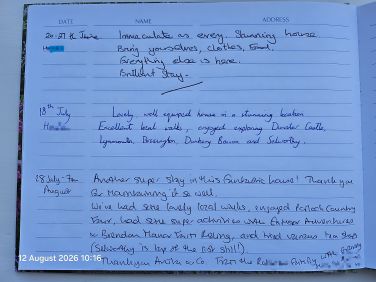 DATE NAME ADDRESS
20-27th June Immaculate as every. Stunning house
Bring yourselves, clothes, food.
Everything else is here.
Brilliant stay.
18th July Lovely, well equiped house in a stunning location
Excellent local walks, enjoyed exploring Dunster Castle,
Lynmouth, Porlock, Dunkery Beacon and Selworthy.
28 July - 7th Another super stay in this fantastic house! Thank you
August for maintaining it so well.
We've had some lovely local walks, enjoyed Porlock Country
Fair, had some super activities with Exmoor Adventures
& Brendan Manor Riding, and tried various tea shops
(Selworthy is top of the list still!)
Thank you & Co. from the Family
12 August 2026 10:16